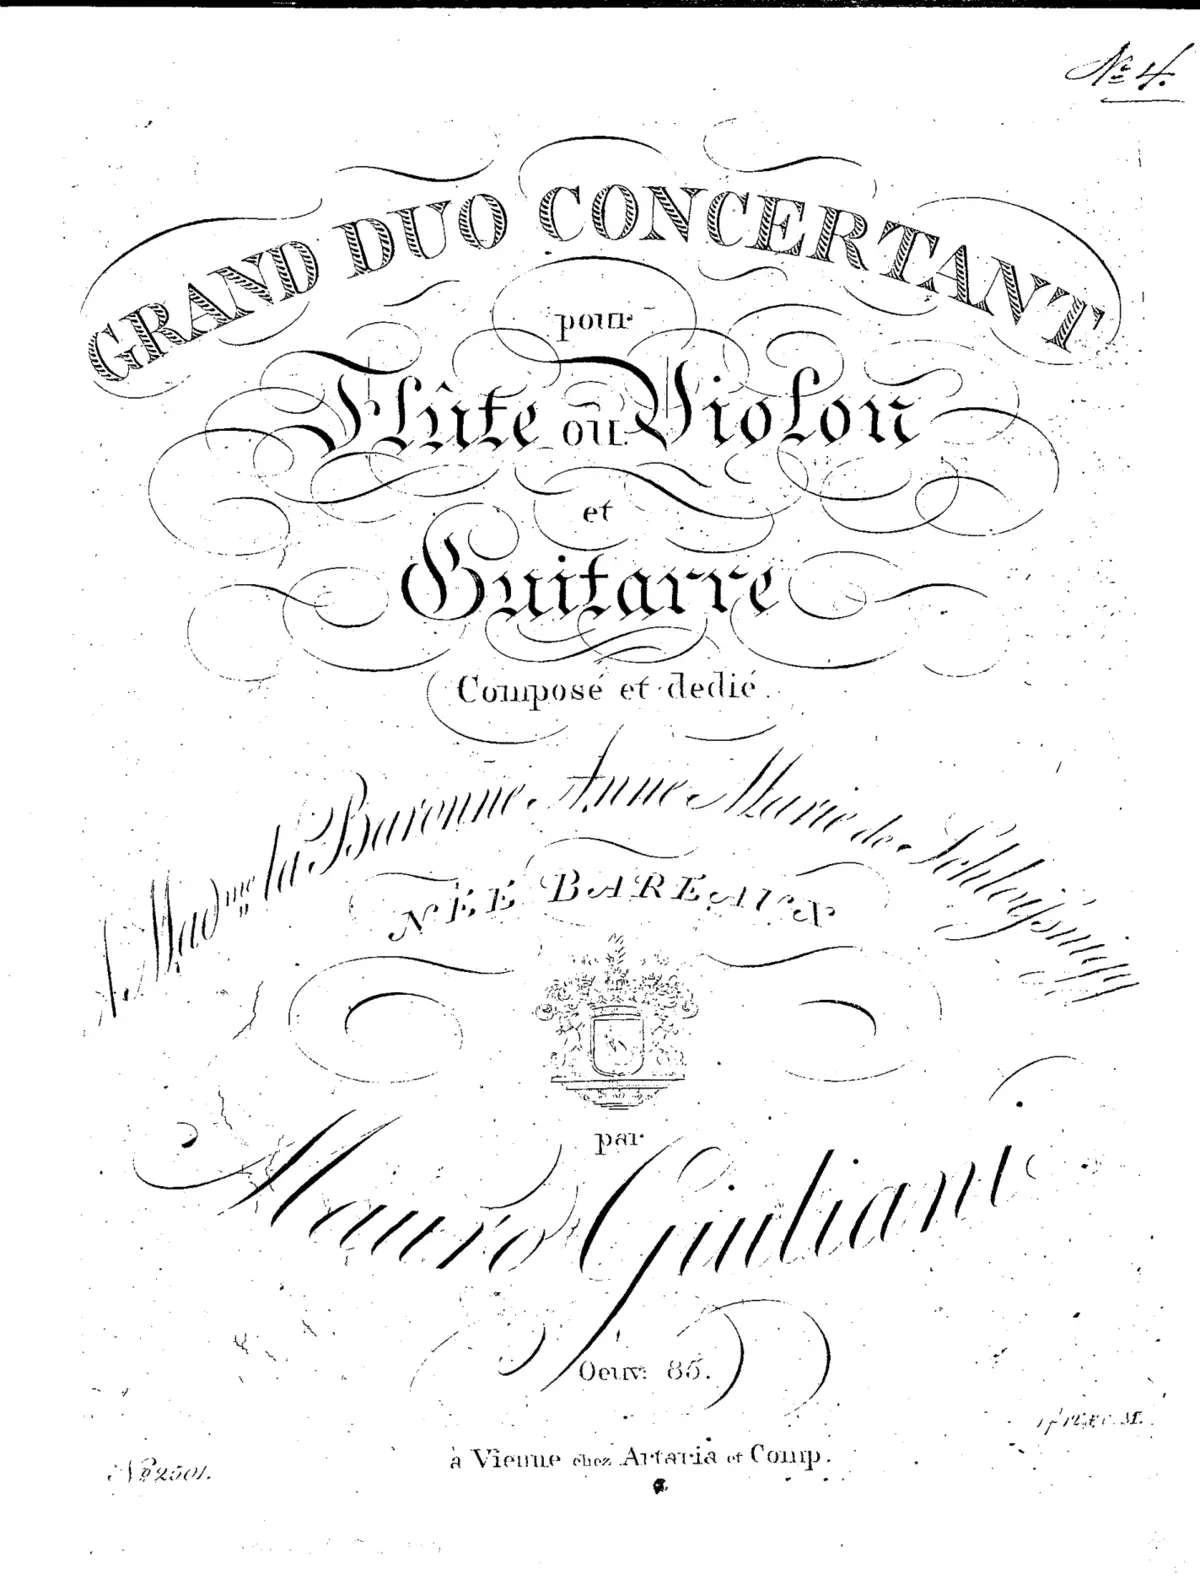 No. 4.
GRAND DUO CONCERTANT
pour
Flûte ou Violon
et
Guitarre
Composé et dedié
A Madme la Baronne Anne Marie de Schloissnigg
NÉE BAREAUX
par
Mauro Giuliani
Oeuv: 85.
No 2501.
à Vienne chez Artaria et Comp.